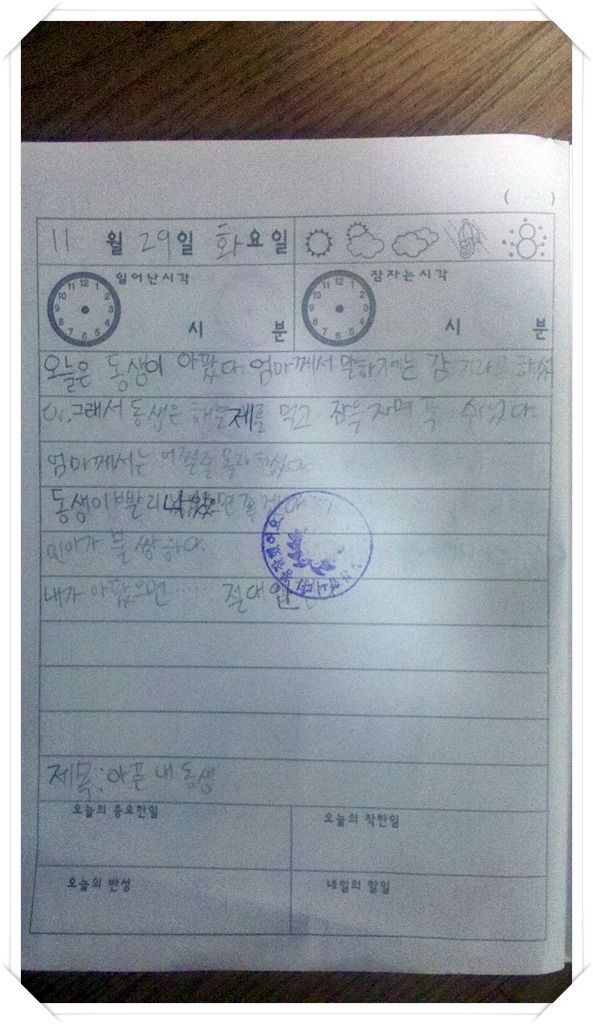 ( )
11 월 29일 화요일
일어난시각
잠자는시각
시 분
시 분
오늘은 동생이 아팠다. 엄마께서 말하기에는 감기라고 하셨
다. 그래서 동생은 해논제를 먹고 잠을 자며 푹 쉬었다.
엄마께서는 어쩔줄 몰라
동생이 빨리 나았으면 좋겠다
민아가 불쌍하다.
내가 아팠으면 절대 안
제목: 아픈 내 동생
오늘의 중요한일
오늘의 착한일
오늘의 반성
내일의 할일